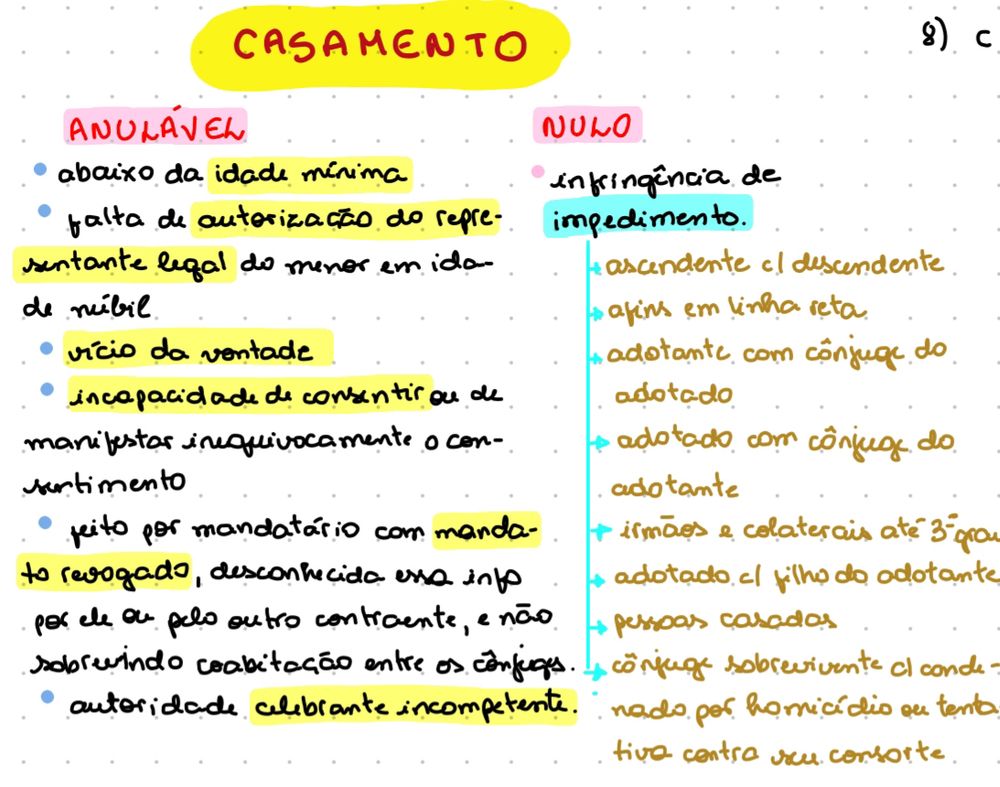 CASAMENTO
8) C
ANULÁVEL
abaixo da idade mínima
falta de autorização do repre-
sentante legal do menor em ida-
de núbil
vício da vontade
incapacidade de consentir ou de
manifestar inequivocamente o con-
sentimento
feito por mandatário com manda-
to revogado, desconhecida essa info
por ele ou pelo outro contraente, e não
sobrevindo coabitação entre os cônjuges.
autoridade celebrante incompetente.
NULO
infringência de
impedimento.
ascendente c/ descendente
afins em linha reta
adotante com cônjuge do
adotado
adotado com cônjuge do
adotante
irmãos e colaterais até 3º grau
adotado c/ filho do adotante
pessoas casadas
cônjuge sobrevivente c/ conde-
nado por homicídio ou tenta
tiva contra seu consorte